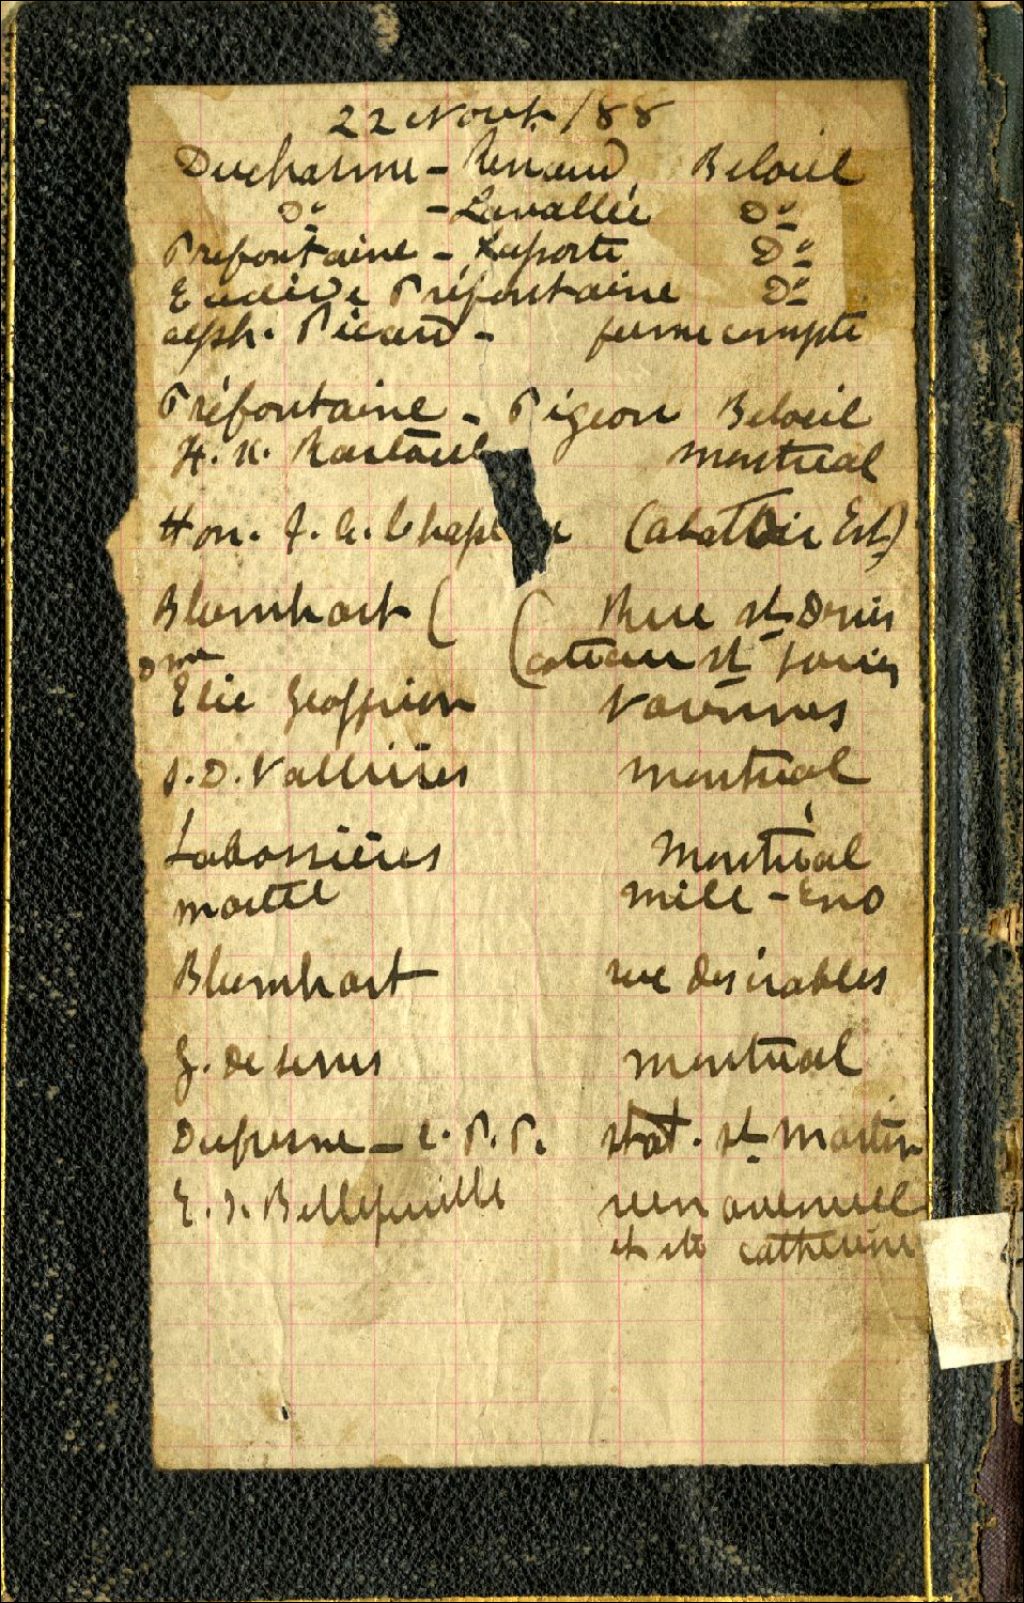 22 Novt. /88
Ducharme - Renaud Beloeil
Do - Lavallée Do
Prefontaine - Laporte Do
Euclide Préfontaine Do
alph. Picard - ferme compte
Préfontaine - Pigeon Beloeil
H. N. Montreal
Hon. J. A. Chapl (abattoir Est)
Blumhart ( ( Rue St Denis
Dme (coteau St Louis
Elie Geoffrion Varennes
S. D. Vallières Montreal
Labossières Montréal
Martel Mile-End
Blumhart rue des érables
G. de serres Montreal
Dufresne - C. P. R. Stat. St Martin
E. L. Bellefeuille
et ste catherine